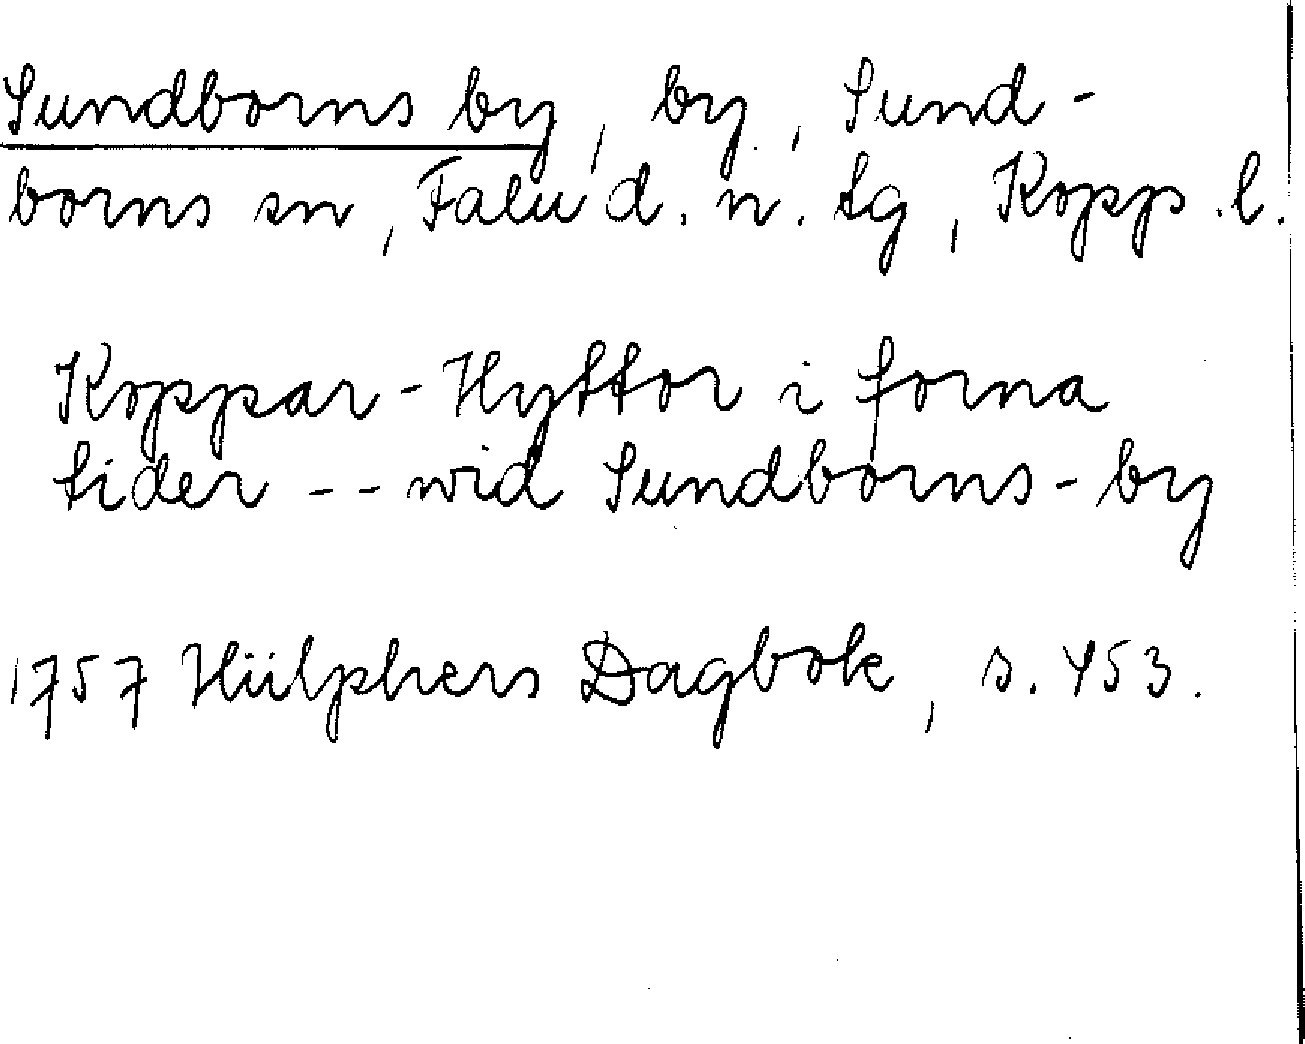 Sundborns by, by, Sund-
borns sn, Falu d. n. tg, Kopp. l.
Koppar-Hyttor i forna
tider -- wid Sundborns-by
1757 Hülphers Dagbok, s. 453.